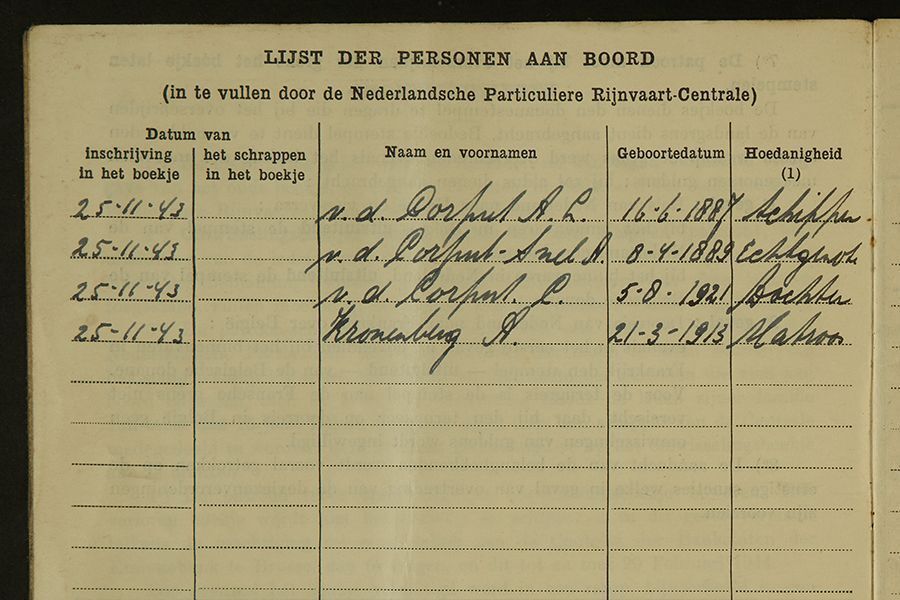 LIJST DER PERSONEN AAN BOORD
(in te vullen door de Nederlandsche Particuliere Rijnvaart-Centrale)
Datum van
inschrijving in het boekje
het schrappen in het boekje
Naam en voornamen
Geboortedatum
Hoedanigheid (1)
25-11-43 v. d. Corput A. L. 16-6-1887 Schipper
25-11-43 v. d. Corput-Snel A. 8-4-1889 Echtgenote
25-11-43 v. d. Corput. C. 5-8-1921 Dochter
25-11-43 Kronenberg A. 21-3-1913 Matroos